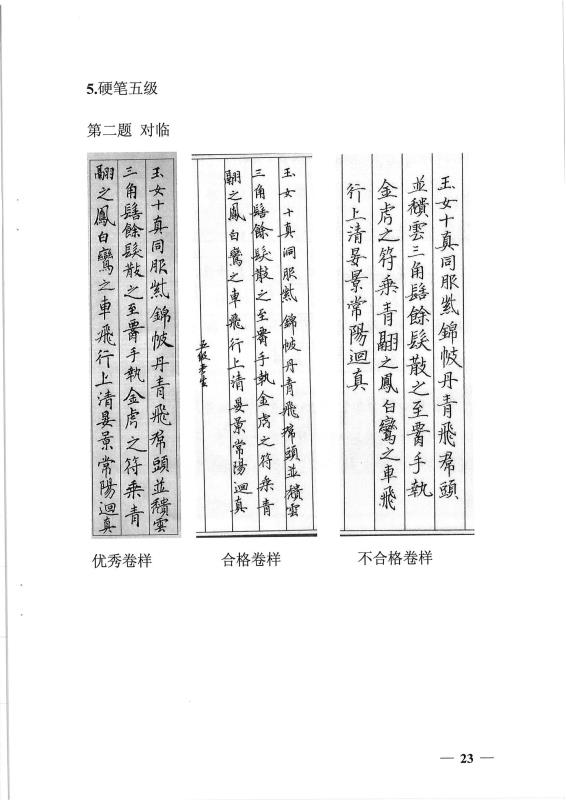 5.硬笔五级
第二题 对临
玉女十真同服紫錦帔丹青飛帬頭並穨雲
三角髻餘髮散之至胷手執金虎之符乘青
翮之鳳白鸞之車飛行上清晏景常陽迴真
玉女十真洞服紫錦帔丹青飛帬頭並穨雲
三角髻餘髮散之至胷手執金虎之符乘青
翮之鳳白鸞之車飛行上清晏景常陽迴真
五級考生
玉女十真同服紫錦帔丹青飛帬頭
並穨雲三角髻餘髮散之至胷手執
金虎之符乘青翮之鳳白鸞之車飛
行上清晏景常陽迴真
优秀卷样
合格卷样
不合格卷样
— 23 —